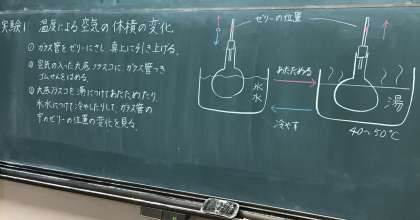 実験1 温度による空気の体積の変化
① ガラス管をゼリーにさし、真上に引き上げる。
② 空気の入った丸底フラスコに、ガラス管つき
ゴムせんをはめる。
③ 丸底フラスコを湯につけてあたためたり、
氷水につけて冷やしたりして、ガラス管の
中のゼリーの位置の変化を見る。
ゼリーの位置
あたためる
冷やす
氷水
湯
40〜50℃